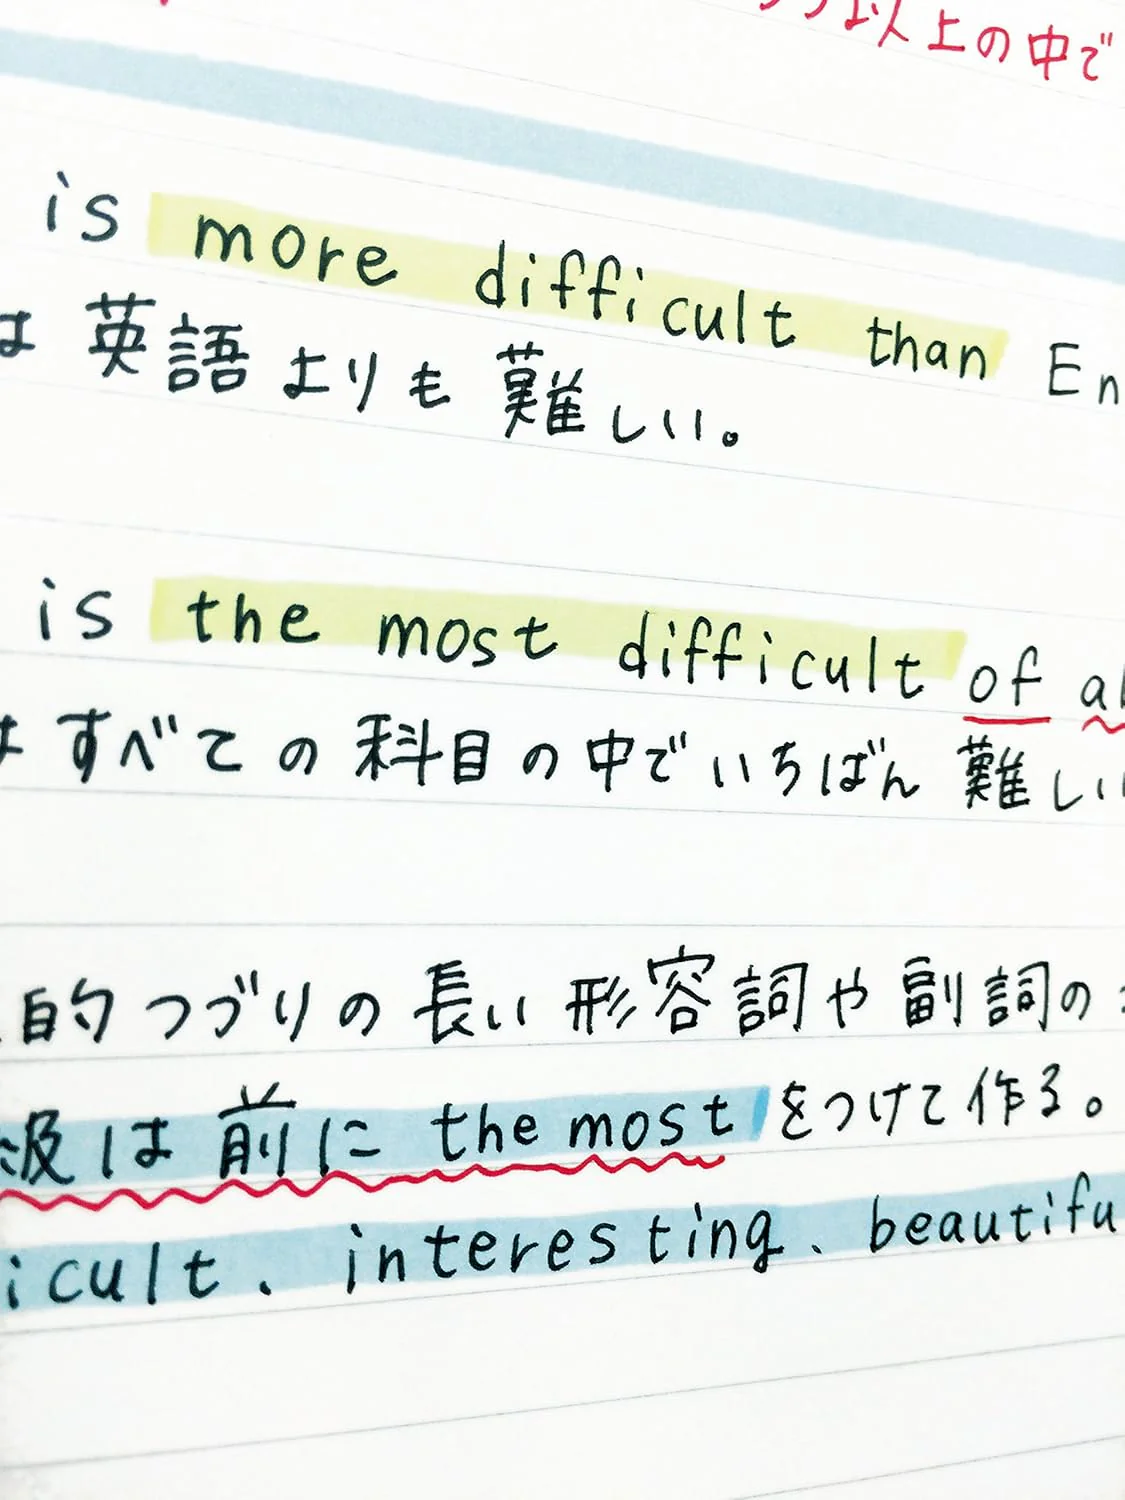 以上の中で
is more difficult than En
は 英語よりも 難しい。
is the most difficult of al
はすべての科目の中でいちばん 難しい
的つづりの長い 形容詞や副詞の
級は 前に the most をつけて作る。
icult、interesting、beautifu